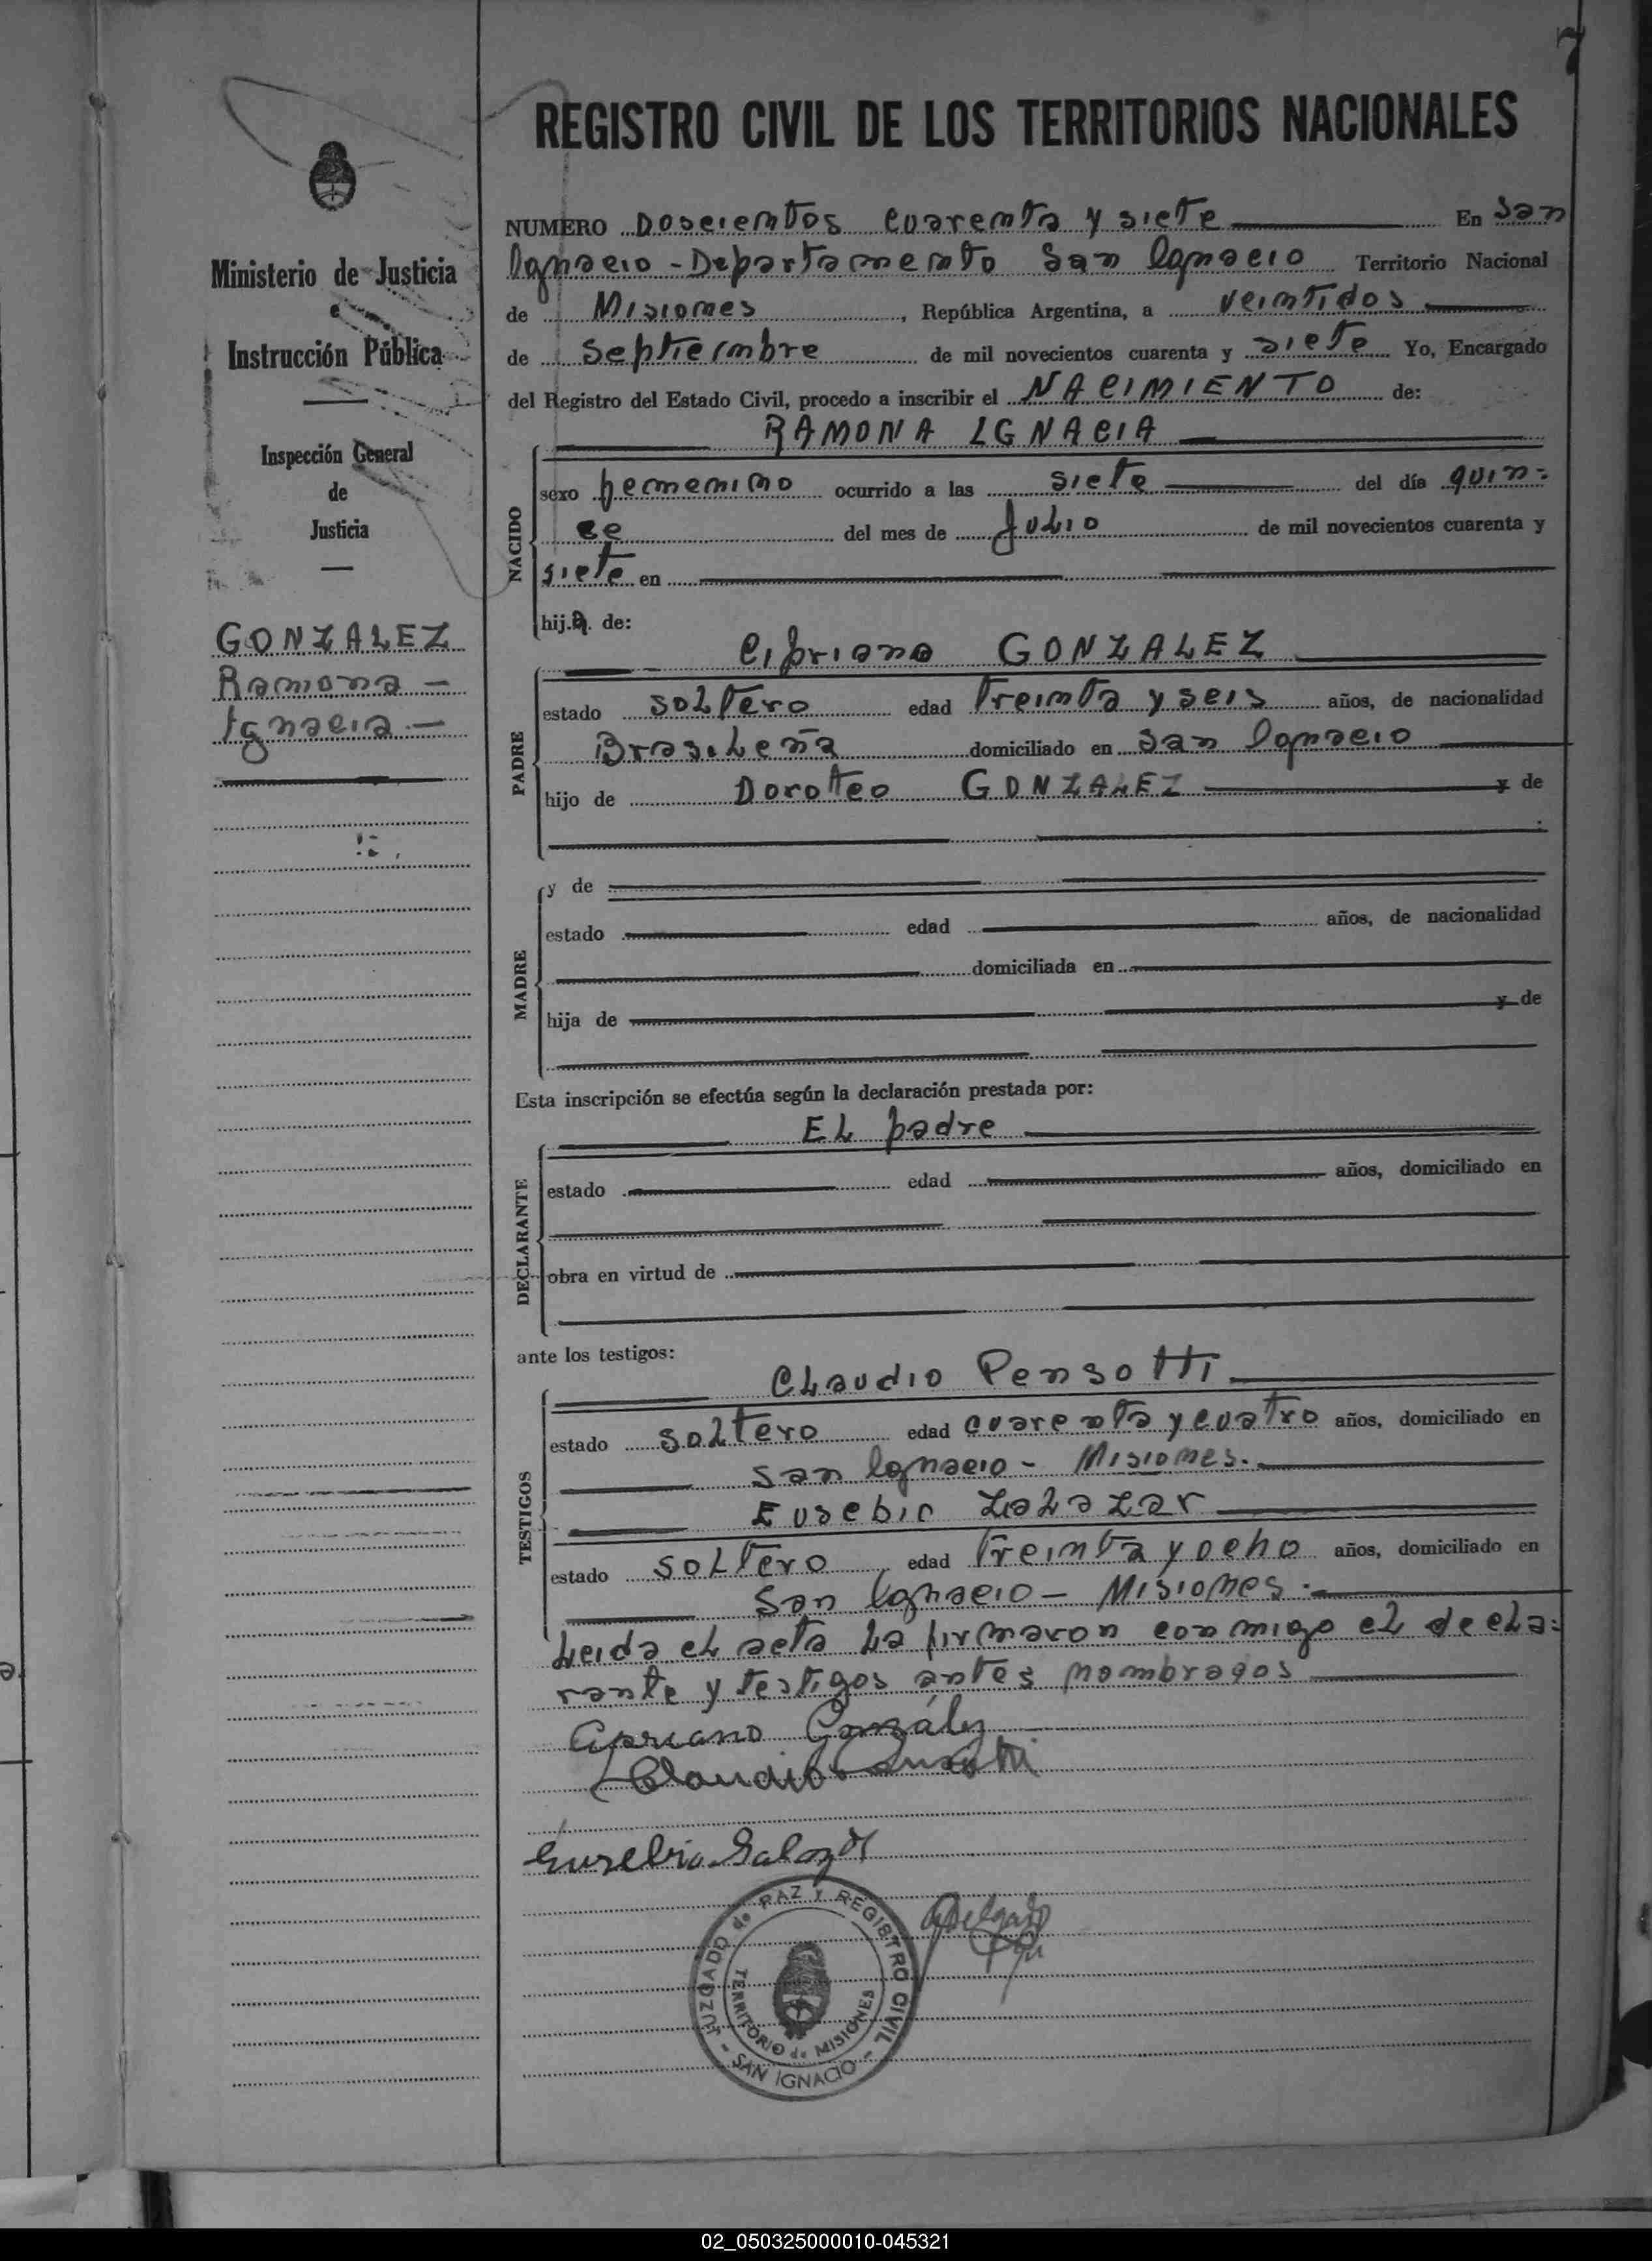 7
REGISTRO CIVIL DE LOS TERRITORIOS NACIONALES
Ministerio de Justicia
e
Instrucción Pública
Inspección General
de
Justicia
GONZALEZ
Ramona —
Ignacia —
NUMERO Doscientos cuarenta y siete En San
Ignacio - Departamento San Ignacio Territorio Nacional
de Misiones, República Argentina, a veintidos
de Septiembre de mil novecientos cuarenta y siete Yo, Encargado
del Registro del Estado Civil, procedo a inscribir el NACIMIENTO de:
RAMONA IGNACIA
NACIDO
sexo femenino ocurrido a las siete del día quin=
ce del mes de Julio de mil novecientos cuarenta y
siete en
hija de:
Cipriano GONZALEZ
PADRE
estado soltero edad treinta y seis años, de nacionalidad
Brasileña domiciliado en San Ignacio
hijo de Doroteo GONZALEZ y de
MADRE
y de
estado edad años, de nacionalidad
domiciliada en
hija de y de
Esta inscripción se efectúa según la declaración prestada por:
El padre
DECLARANTE
estado edad años, domiciliado en
obra en virtud de
ante los testigos:
Claudio Pensotti
TESTIGOS
estado soltero edad cuarenta y cuatro años, domiciliado en
San Ignacio - Misiones.
Eusebio Zalazar
estado soltero edad treinta y ocho años, domiciliado en
San Ignacio - Misiones.
Leida el acta la firmaron conmigo el decla=
rante y testigos antes nombrados
Cipriano González
Claudio Pensotti
Eusebio Salazar
JUZGADO de PAZ Y REGISTRO CIVIL
TERRITORIO de MISIONES
- SAN IGNACIO -
02_050325000010-045321